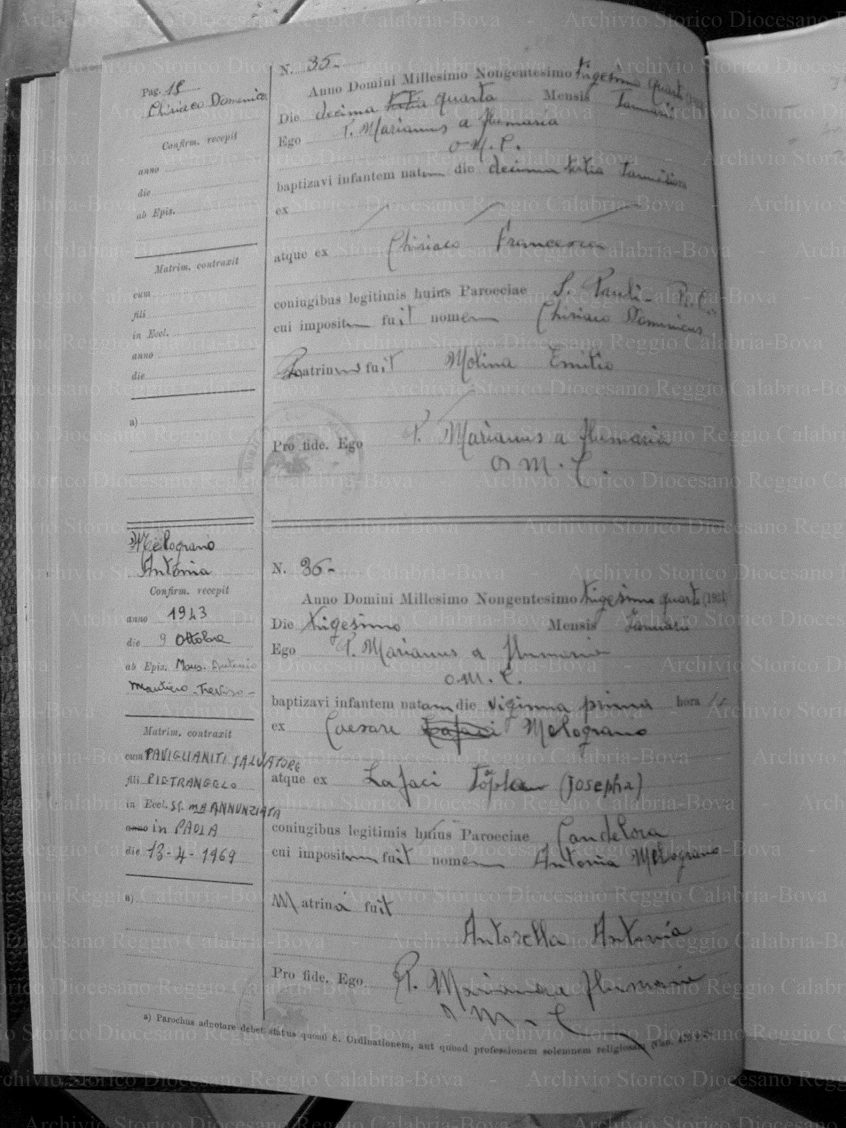 Pag. 18
Chiriaco Domenico
Confirm. recepit
anno
die
ab Epix.
Matrim. contraxit
cum
fili
in Eccl.
anno
die
a)
N. 35-
Anno Domini Millesimo Nongentesimo trigesimo quarto
Die decima tertia quarta Mensis Januarii
Ego P. Marianus a flumaria
O. M. C.
baptizavi infantem natum die decima tertia Januarii hora
ex
atque ex Chiriaco Francesca
coniugibus legitimis huius Paroeciae S. Pauli - R. C.
cui impositum fuit nomen Chiriaco Dominicus
Patrinus fuit Molina Emilio
Pro fide. Ego P. Marianus a flumaria
O M. C.
Melograno
Antonia
Confirm. recepit
anno 1943
die 9 Ottobre
ab Epix. Mons. Antonio
Mantiero - Treviso -
Matrim. contraxit
cum PAVIGLIANITI SALVATORE
fili PIETRANGELO
in Eccl. SS. MA ANNUNZIATA
anno in PAOLA
die 13-4-1969
a)
N. 36-
Anno Domini Millesimo Nongentesimo trigesimo quarto (1934
Die trigesimo Mensis Januarii
Ego P. Marianus a flumaria
O. M. C.
baptizavi infantem natam die vigesima prima hora
ex Caesare Lafaci Melograno
atque ex Lafaci (Josepha)
coniugibus legitimis huius Paroeciae Candelora
cui impositum fuit nomen Antonia Melograno
Matrina fuit
Antonella Antonia
Pro fide. Ego P. Marianus a flumaria
O M. C
a) Parochus adnotare debet status quoad S. Ordinationem, aut quoad professionem solemnem religiosam
Archivio Storico Diocesano Reggio Calabria-Bova